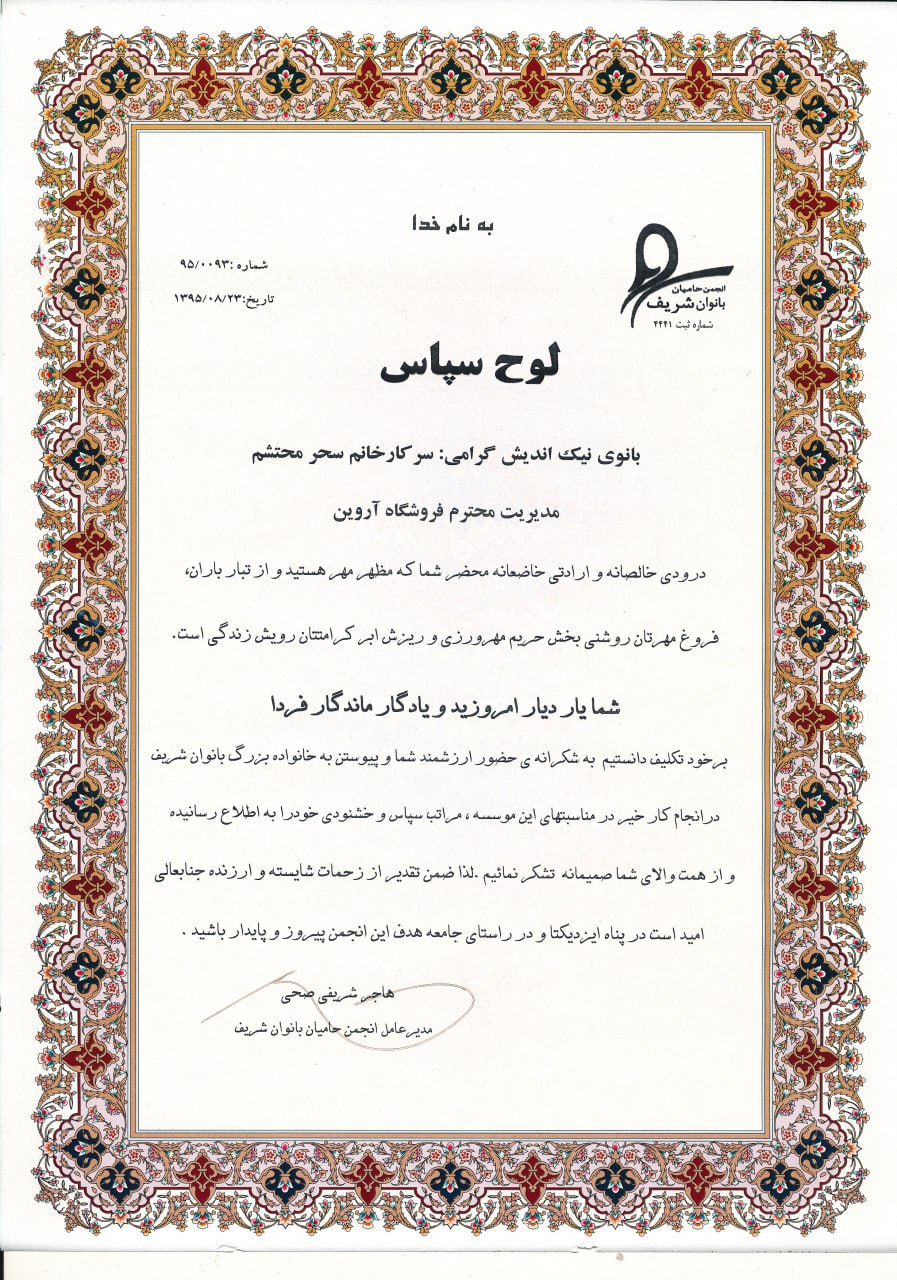 به نام خدا
شماره :۹۵/۰۰۹۳
تاریخ:۱۳۹۵/۰۸/۲۳
انجمن حامیان
بانوان شریف
شماره ثبت ۴۴۴۱
لوح سپاس
بانوی نیک اندیش گرامی: سرکارخانم سحر محتشم
مدیریت محترم فروشگاه آروین
درودی خالصانه و ارادتی خاضعانه محضر شما که مظهر مهر هستید و از تبار باران،
فروغ مهرتان روشنی بخش حریم مهرورزی و ریزش ابر کرامتتان رویش زندگی است.
شما یار دیار امروزید و یادگار ماندگار فردا
برخود تکلیف دانستیم به شکرانه ی حضور ارزشمند شما و پیوستن به خانواده بزرگ بانوان شریف
درانجام کار خیر در مناسبتهای این موسسه ، مراتب سپاس و خشنودی خودرا به اطلاع رسانیده
و از همت والای شما صمیمانه تشکر نمائیم .لذا ضمن تقدیر از زحمات شایسته و ارزنده جنابعالی
امید است در پناه ایزدیکتا و در راستای جامعه هدف این انجمن پیروز و پایدار باشید .
هاجر شریفی صحی
مدیرعامل انجمن حامیان بانوان شریف